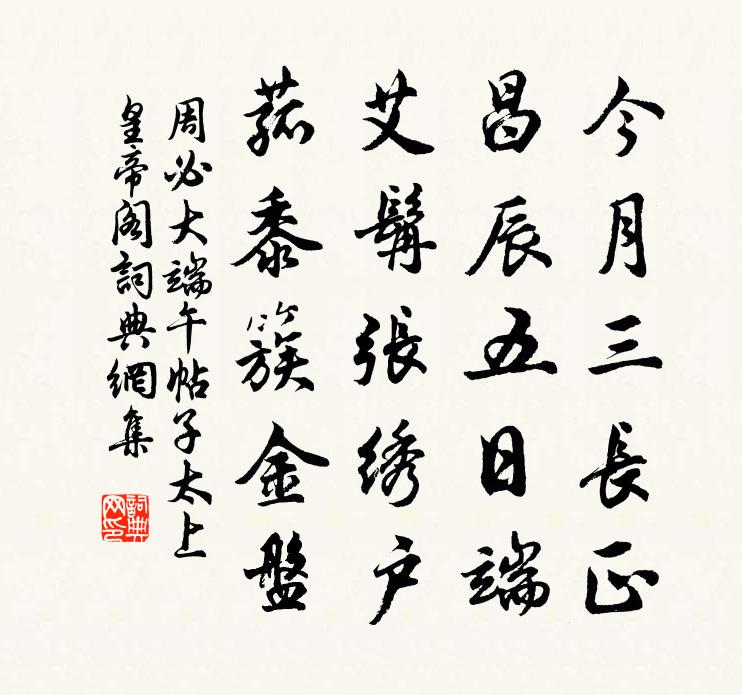 今月三長正
昌辰五日端
艾髯張綉户
菰黍簇金盤
周必大端午帖子太上
皇帝阁詞典網集
詞典网印